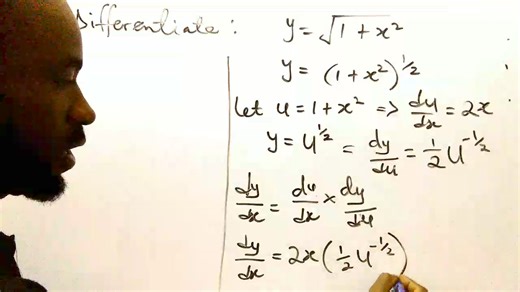 Differentiate: y = √(1 + x²)
y = (1 + x²)^{1/2}
Let u = 1 + x² => du/dx = 2x
y = u^{1/2} = dy/du = 1/2 u^{-1/2}
dy/dx = du/dx × dy/du
dy/dx = 2x (1/2 u^{-1/2})